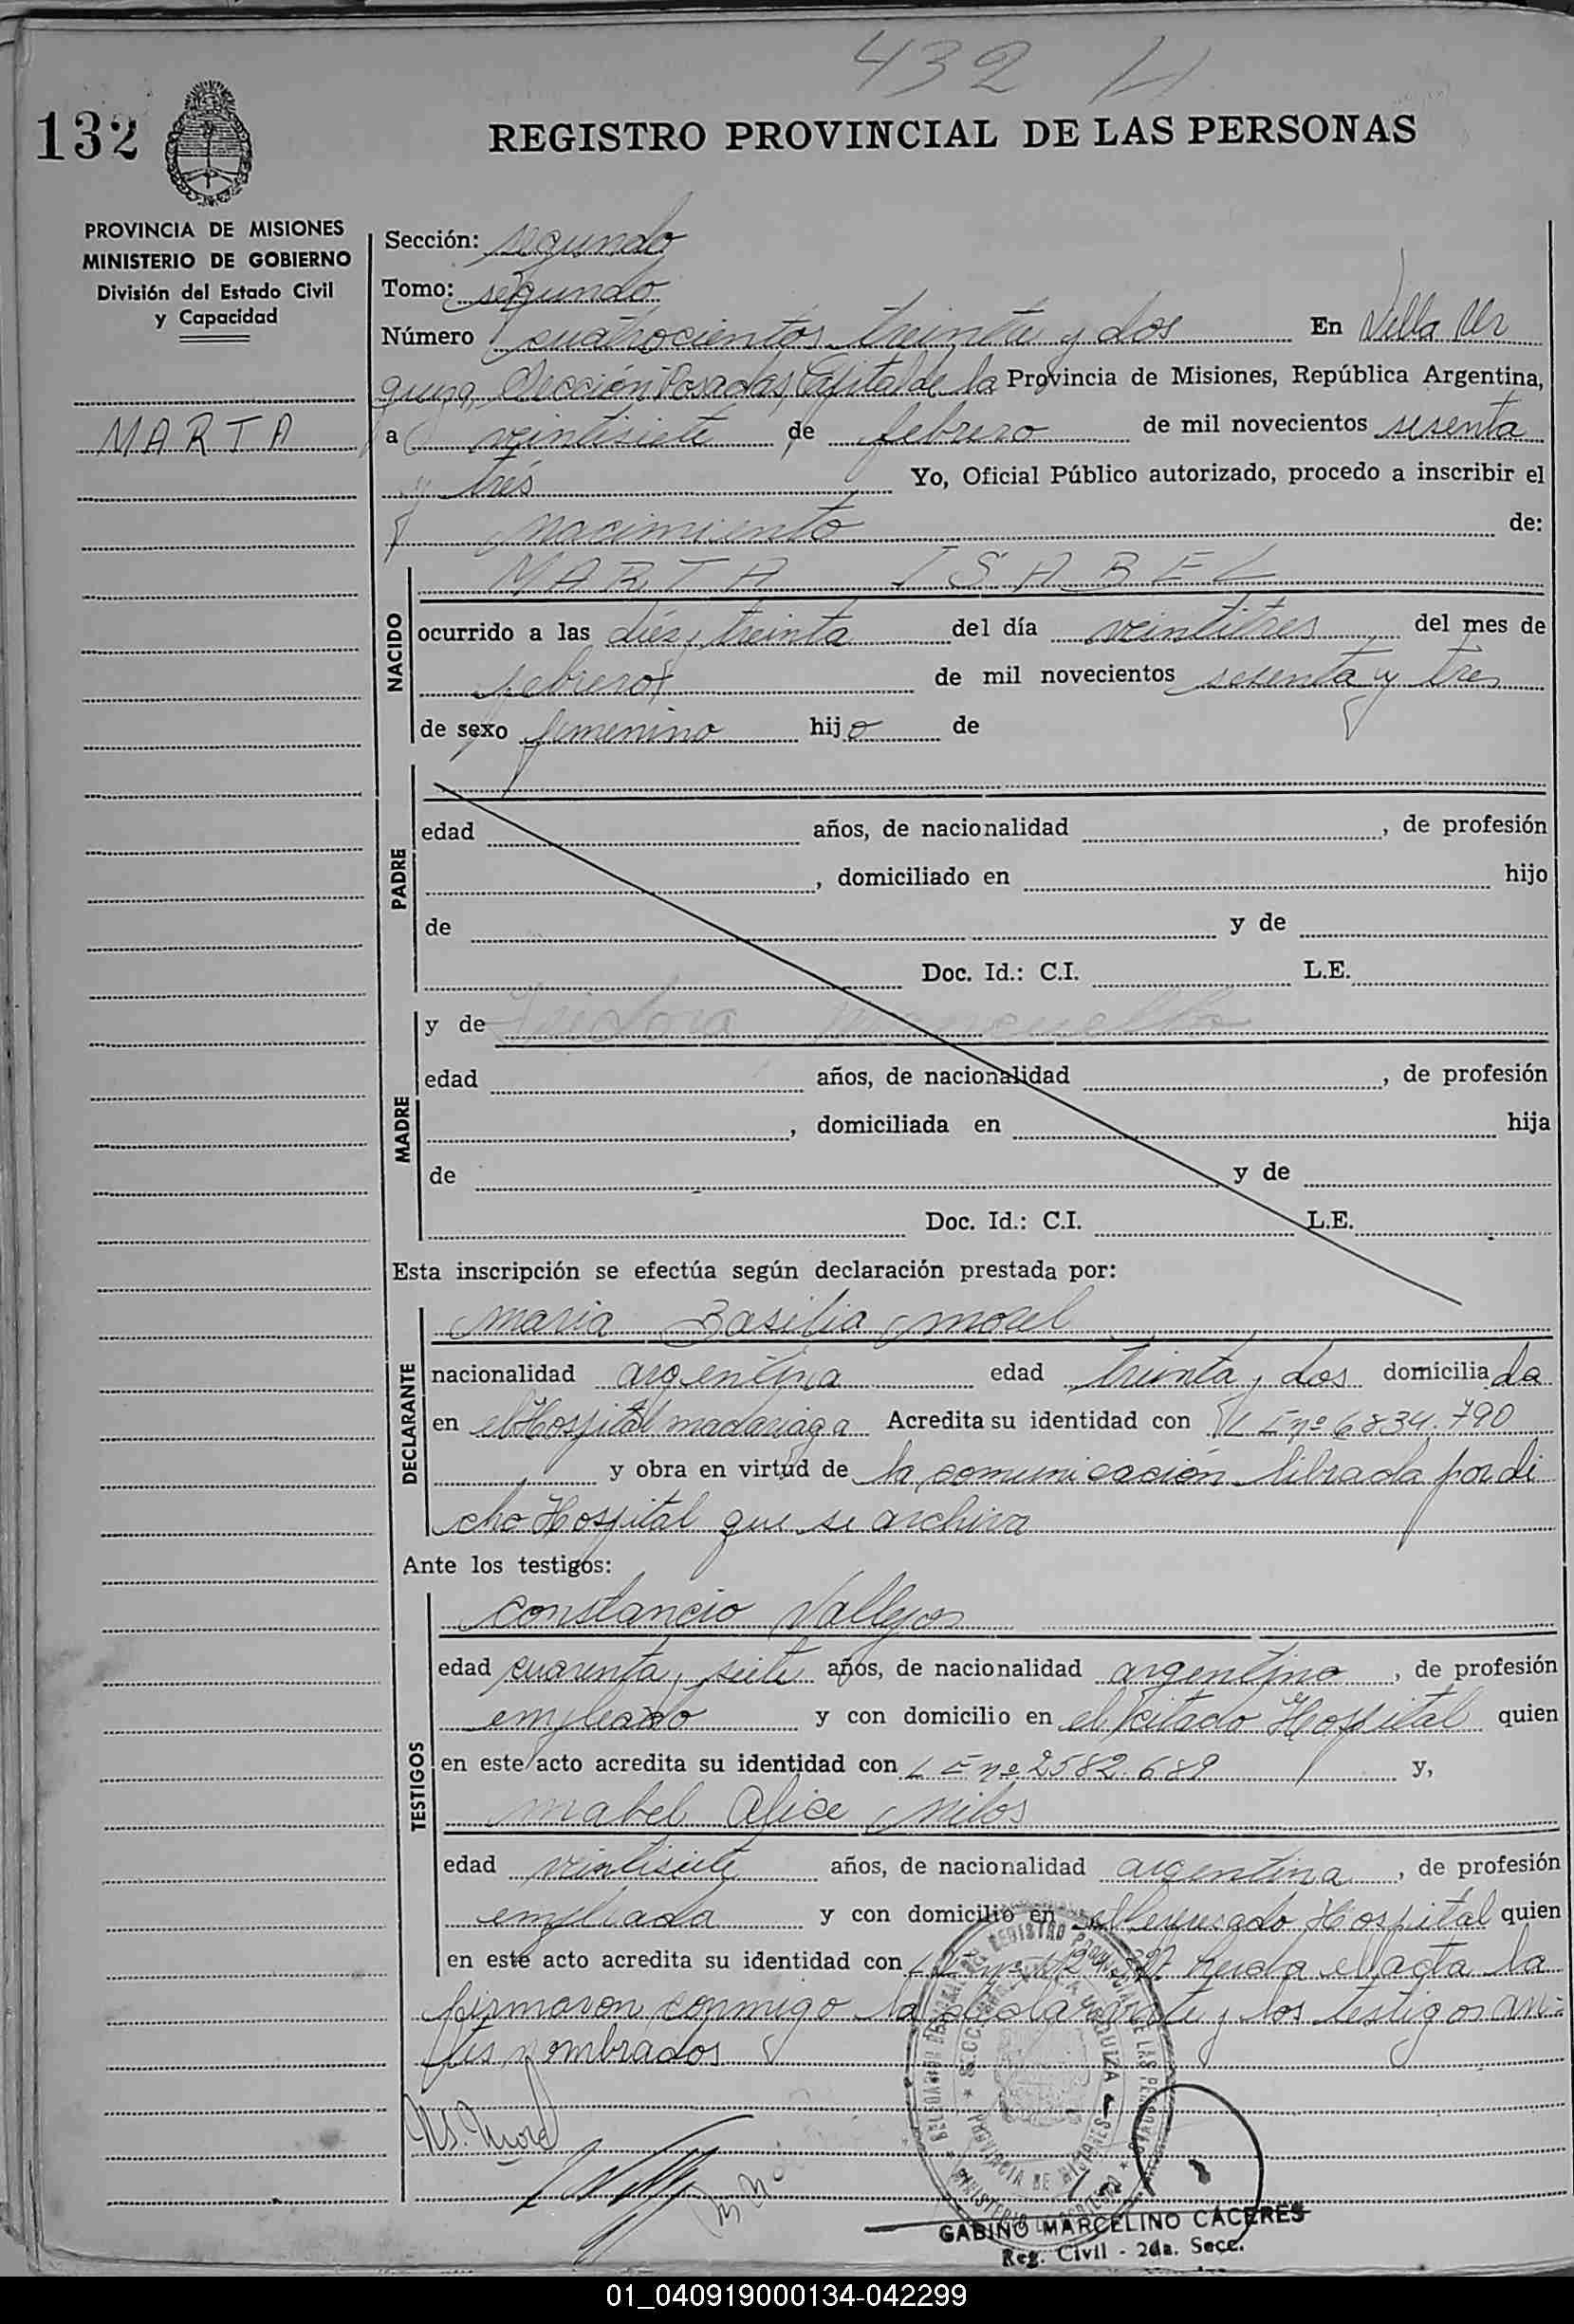 432 H
132
REGISTRO PROVINCIAL DE LAS PERSONAS
PROVINCIA DE MISIONES
MINISTERIO DE GOBIERNO
División del Estado Civil
y Capacidad
MARTA
Sección: segundo
Tomo: segundo
Número cuatrocientos treinta y dos En Villa Ur
quiza, Sección Posadas, Capital de la Provincia de Misiones, República Argentina,
a veintisiete de febrero de mil novecientos sesenta
y tres Yo, Oficial Público autorizado, procedo a inscribir el
nacimiento de:
NACIDO
MARTA ISABEL
ocurrido a las diez y treinta del día veintitres del mes de
febrero de mil novecientos sesenta y tres
de sexo femenino hijo de
PADRE
edad años, de nacionalidad , de profesión
, domiciliado en hijo
de y de
Doc. Id.: C.I. L.E.
MADRE
y de Isidora
edad años, de nacionalidad , de profesión
, domiciliada en hija
de y de
Doc. Id.: C.I. L.E.
Esta inscripción se efectúa según declaración prestada por:
DECLARANTE
Maria Basilia Morel
nacionalidad argentina edad treinta y dos domiciliada
en el Hospital Madariaga Acredita su identidad con nº 6834.790
y obra en virtud de la comunicación librada por di
cho Hospital que se archiva
Ante los testigos:
TESTIGOS
Constancio Vallejos
edad cuarenta y siete años, de nacionalidad argentino, de profesión
empleado y con domicilio en el citado Hospital quien
en este acto acredita su identidad con L E nº 2582.689 y,
Mabel Alice Milos
edad veintisiete años, de nacionalidad argentina, de profesión
empleada y con domicilio en el Hospital quien
en este acto acredita su identidad con leida el acta la
firmaron conmigo la declarante y los testigos an=
tes nombrados
Ms. Morel
GABINO MARCELINO CACERES
Reg. Civil - 2da. Secc.
01_040919000134-042299